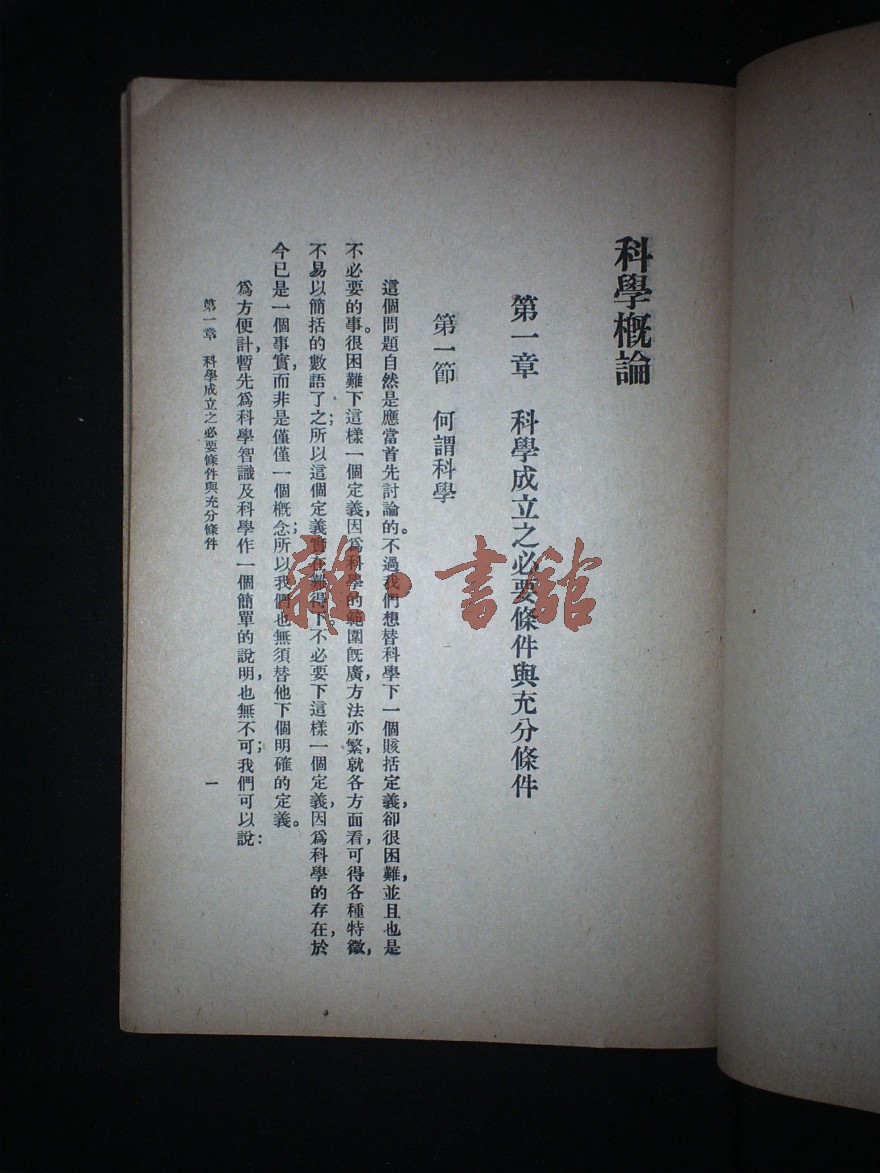 科學概論
第一章　科學成立之必要條件與充分條件
第一節　何謂科學
這個問題自然是應當首先討論的。不過我們想替科學下一個賅括定義，卻很困難，並且也是
不必要的事。很困難下這樣一個定義，因爲科學的範圍旣廣，方法亦繁，就各方面看，可得各種特徵，
不易以簡括的數語了之；所以這個定義實在難得下。不必要下這樣一個定義，因爲科學的存在，於
今已是一個事實，而非是僅僅一個槪念；所以我們也無須替他下個明確的定義。
爲方便計，暫先爲科學智識及科學作一個簡單的說明，也無不可；我們可以說：
第一章　科學成立之必要條件與充分條件
一
雜·書館